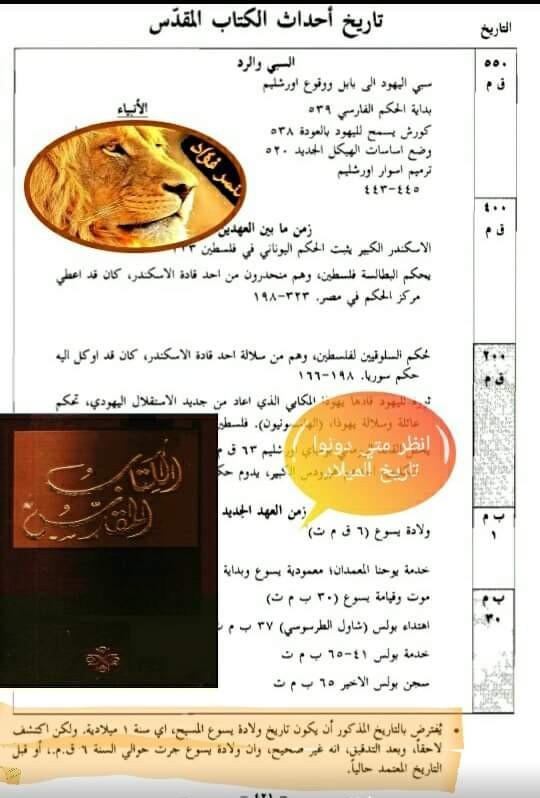 تاريخ أحداث الكتاب المقدّس
التاريخ
٥٥٠
ق م
السبي والرد
سبي اليهود الى بابل ووقوع اورشليم
بداية الحكم الفارسي ٥٣٩
الأنبياء
كورش يسمح لليهود بالعودة ٥٣٨
وضع اساسات الهيكل الجديد ٥٢٠
ترميم اسوار اورشليم
٤٤٥-٤٤٣
٤٠٠
ق م
زمن ما بين العهدين
الاسكندر الكبير يثبت الحكم اليوناني في فلسطين
يحكم البطالسة فلسطين، وهم منحدرون من احد قادة الاسكندر، كان قد اعطي
مركز الحكم في مصر. ٣٢٣-١٩٨
٢٠٠
ق م
لحكم السلوقيين لفلسطين، وهم من سلالة احد قادة الاسكندر، كان قد اوكل اليه
حكم سوريا. ١٩٨-١٦٦
ثورة لليهود قادها يهوذا المكابي الذي اعاد من جديد الاستقلال اليهودي، تحكم
عائلة وسلالة يهوذا، فلسطين
اورشليم ٦٣ ق م
الكبير، يدوم
انظر متي دونوا
تاريخ الميلاد
الكتاب
المقدس
ب م
١
زمن العهد الجديد
ولادة يسوع (٦ ق م ت)
خدمة يوحنا المعمدان؛ معمودية يسوع وبداية
ب م
٣٠
موت وقيامة يسوع (٣٠ ب م ت)
اهتداء بولس (شاول الطرسوسي) ٣٧ ب م ت
خدمة بولس ٤١-٦٥ ب م ت
سجن بولس الاخير ٦٥ ب م ت
• يُفترض بالتاريخ المذكور أن يكون تاريخ ولادة يسوع المسيح، اي سنة ١ ميلادية. ولكن اكتشف
لاحقاً، وبعد التدقيق، انه غير صحيح، وان ولادة يسوع جرت حوالي السنة ٦ ق.م.، أو قبل
التاريخ المعتمد حالياً.